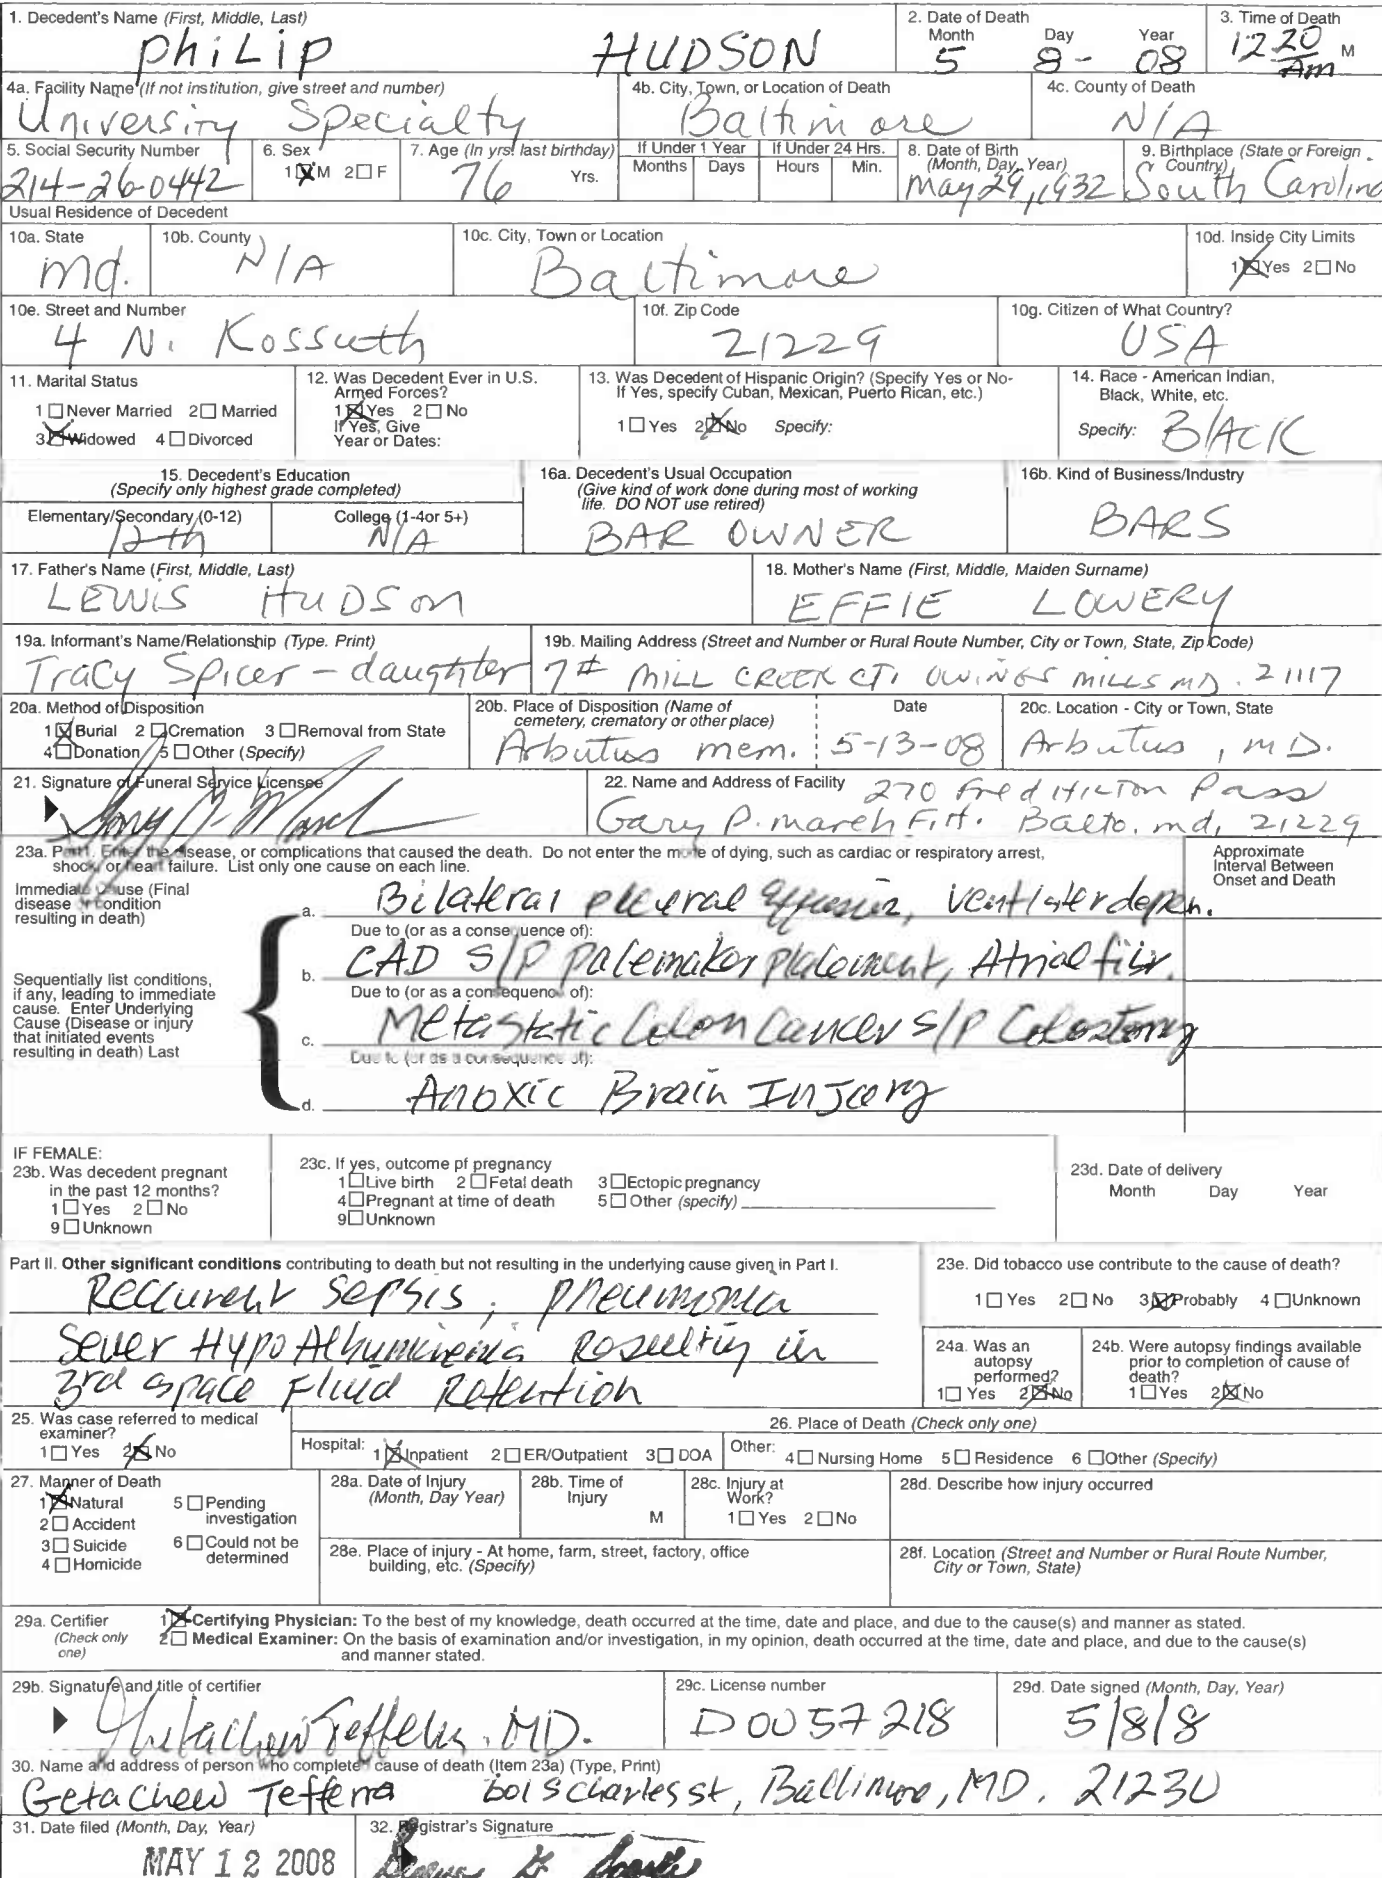 1. Decedent's Name (First, Middle, Last)
PhiLip HUDSON
2. Date of Death
Month Day Year
5 8- 08
3. Time of Death
1220 Am M
4a. Facility Name (If not institution, give street and number)
University Specialty
4b. City, Town, or Location of Death
Baltimore
4c. County of Death
N/A
5. Social Security Number
214-26-0442
6. Sex
1☒M 2☐F
7. Age (In yrs. last birthday)
76 Yrs.
If Under 1 Year
Months Days
If Under 24 Hrs.
Hours Min.
8. Date of Birth
(Month, Day, Year)
May 29, 1932
9. Birthplace (State or Foreign
Country)
South Carolina
Usual Residence of Decedent
10a. State
md.
10b. County
N/A
10c. City, Town or Location
Baltimore
10d. Inside City Limits
1☒Yes 2☐No
10e. Street and Number
4 N. Kossuth
10f. Zip Code
21229
10g. Citizen of What Country?
USA
11. Marital Status
1☐Never Married 2☐Married
3☒Widowed 4☐Divorced
12. Was Decedent Ever in U.S.
Armed Forces?
1☒Yes 2☐No
If Yes, Give
Year or Dates:
13. Was Decedent of Hispanic Origin? (Specify Yes or No-
If Yes, specify Cuban, Mexican, Puerto Rican, etc.)
1☐Yes 2☒No Specify:
14. Race - American Indian,
Black, White, etc.
Specify: BlACK
15. Decedent's Education
(Specify only highest grade completed)
Elementary/Secondary (0-12)
12th
College (1-4or 5+)
N/A
16a. Decedent's Usual Occupation
(Give kind of work done during most of working
life. DO NOT use retired)
BAR OWNER
16b. Kind of Business/Industry
BARS
17. Father's Name (First, Middle, Last)
LEWIS HUDSON
18. Mother's Name (First, Middle, Maiden Surname)
EFFIE LOWERY
19a. Informant's Name/Relationship (Type. Print)
Tracy Spicer - daughter
19b. Mailing Address (Street and Number or Rural Route Number, City or Town, State, Zip Code)
7# MILL CREEK CT. OWINGS MILLS MD. 21117
20a. Method of Disposition
1☒Burial 2☐Cremation 3☐Removal from State
4☐Donation 5☐Other (Specify)
20b. Place of Disposition (Name of
cemetery, crematory or other place)
Arbutus mem.
Date
5-13-08
20c. Location - City or Town, State
Arbutus, MD.
21. Signature of Funeral Service Licensee
22. Name and Address of Facility
270 Fred Hilton Pass
Gary P. March F.H. Balto. md, 21229
23a. Part I. Enter the disease, or complications that caused the death. Do not enter the mode of dying, such as cardiac or respiratory arrest,
shock, or heart failure. List only one cause on each line.
Approximate
Interval Between
Onset and Death
Immediate Cause (Final
disease or condition
resulting in death)
a. Bilateral pleural effusion, ventilator depen.
Due to (or as a consequence of):
Sequentially list conditions,
if any, leading to immediate
cause. Enter Underlying
Cause (Disease or injury
that initiated events
resulting in death) Last
b. CAD S/P pacemaker placement, Atrial fibr.
Due to (or as a consequence of):
c. Metastatic Colon Cancer S/P Colostomy
Due to (or as a consequence of):
d. Anoxic Brain Injury
IF FEMALE:
23b. Was decedent pregnant
in the past 12 months?
1☐Yes 2☐No
9☐Unknown
23c. If yes, outcome pf pregnancy
1☐Live birth 2☐Fetal death 3☐Ectopic pregnancy
4☐Pregnant at time of death 5☐Other (specify)
9☐Unknown
23d. Date of delivery
Month Day Year
Part II. Other significant conditions contributing to death but not resulting in the underlying cause given in Part I.
Reccurent Sepsis, pneumonia
Sever HypoAlbuminemia Resulting in
3rd space Fluid Retention
23e. Did tobacco use contribute to the cause of death?
1☐Yes 2☐No 3☒Probably 4☐Unknown
24a. Was an
autopsy
performed?
1☐Yes 2☒No
24b. Were autopsy findings available
prior to completion of cause of
death?
1☐Yes 2☒No
25. Was case referred to medical
examiner?
1☐Yes 2☒No
26. Place of Death (Check only one)
Hospital: 1☒Inpatient 2☐ER/Outpatient 3☐DOA
Other: 4☐Nursing Home 5☐Residence 6☐Other (Specify)
27. Manner of Death
1☒Natural 5☐Pending
investigation
2☐Accident
3☐Suicide 6☐Could not be
determined
4☐Homicide
28a. Date of Injury
(Month, Day Year)
28b. Time of
Injury
M
28c. Injury at
Work?
1☐Yes 2☐No
28d. Describe how injury occurred
28e. Place of injury - At home, farm, street, factory, office
building, etc. (Specify)
28f. Location (Street and Number or Rural Route Number,
City or Town, State)
29a. Certifier
(Check only
one)
1☒Certifying Physician: To the best of my knowledge, death occurred at the time, date and place, and due to the cause(s) and manner as stated.
2☐Medical Examiner: On the basis of examination and/or investigation, in my opinion, death occurred at the time, date and place, and due to the cause(s)
and manner stated.
29b. Signature and title of certifier
Getachew Teffera, MD.
29c. License number
D0057218
29d. Date signed (Month, Day, Year)
5/8/8
30. Name and address of person who complete cause of death (Item 23a) (Type, Print)
Getachew Teffera 601 S Charles st, Baltimore, MD. 21230
31. Date filed (Month, Day, Year)
MAY 12 2008
32. Registrar's Signature